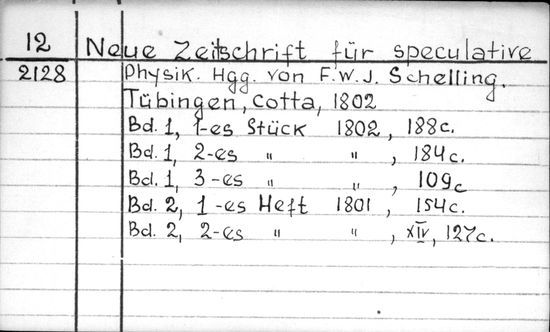 12 Neue Zeitschrift für speculative
2128 Physik. Hgg. von F.W.J. Schelling.
Tübingen, Cotta, 1802
Bd. 1, 1-es Stück 1802, 188c.
Bd. 1, 2-es " ", 184c.
Bd. 1, 3-es " ", 109c
Bd. 2, 1-es Heft 1801, 154c.
Bd. 2, 2-es " ", XIV, 127c.